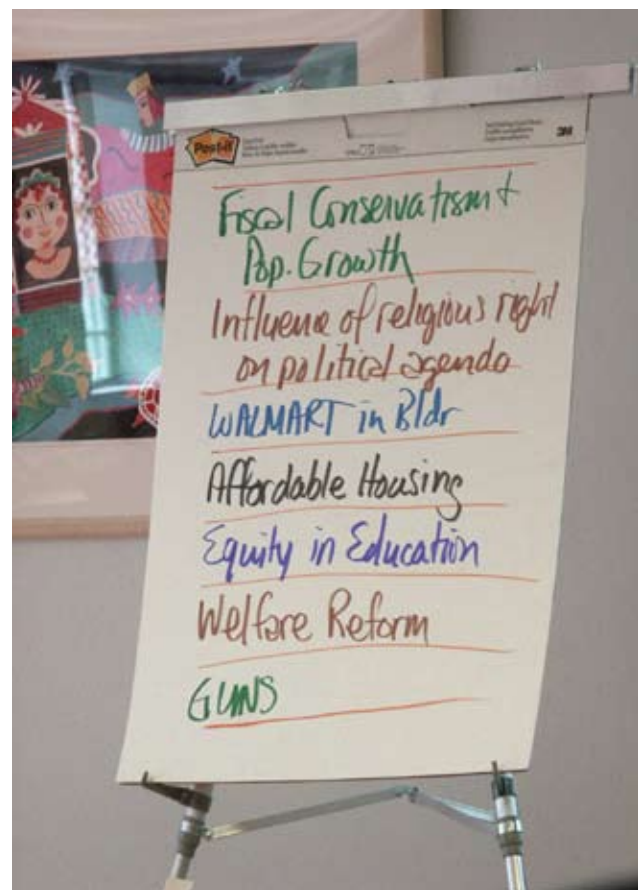 Post-it
3M
Fiscal Conservatism +
Pop. Growth
Influence of religious right
on political agenda
WALMART in Bldr
Affordable Housing
Equity in Education
Welfare Reform
GUNS